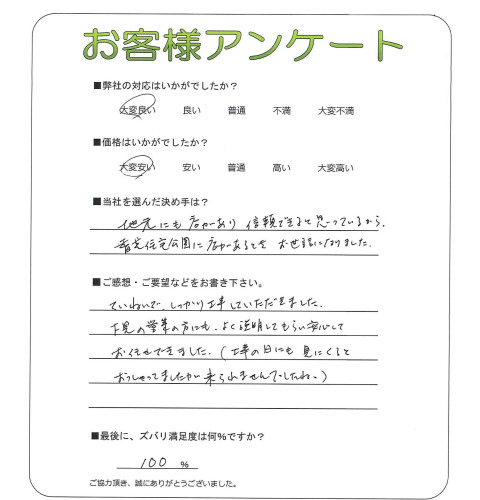 お客様アンケート
■弊社の対応はいかがでしたか？
大変良い 良い 普通 不満 大変不満
■価格はいかがでしたか？
大変安い 安い 普通 高い 大変高い
■当社を選んだ決め手は？
地元にも店があり 信頼できると思っているから。
住宅公園に店があるときも お世話になりました。
■ご感想・ご要望などをお書き下さい。
ていねいで、しっかり工事していただきました。
下見の営業の方にも、よく説明してもらい安心して
お任せできました。（工事の日にも見にくると
おっしゃってましたが来られませんでしたね。）
■最後に、ズバリ満足度は何％ですか？
100 ％
ご協力頂き、誠にありがとうございました。